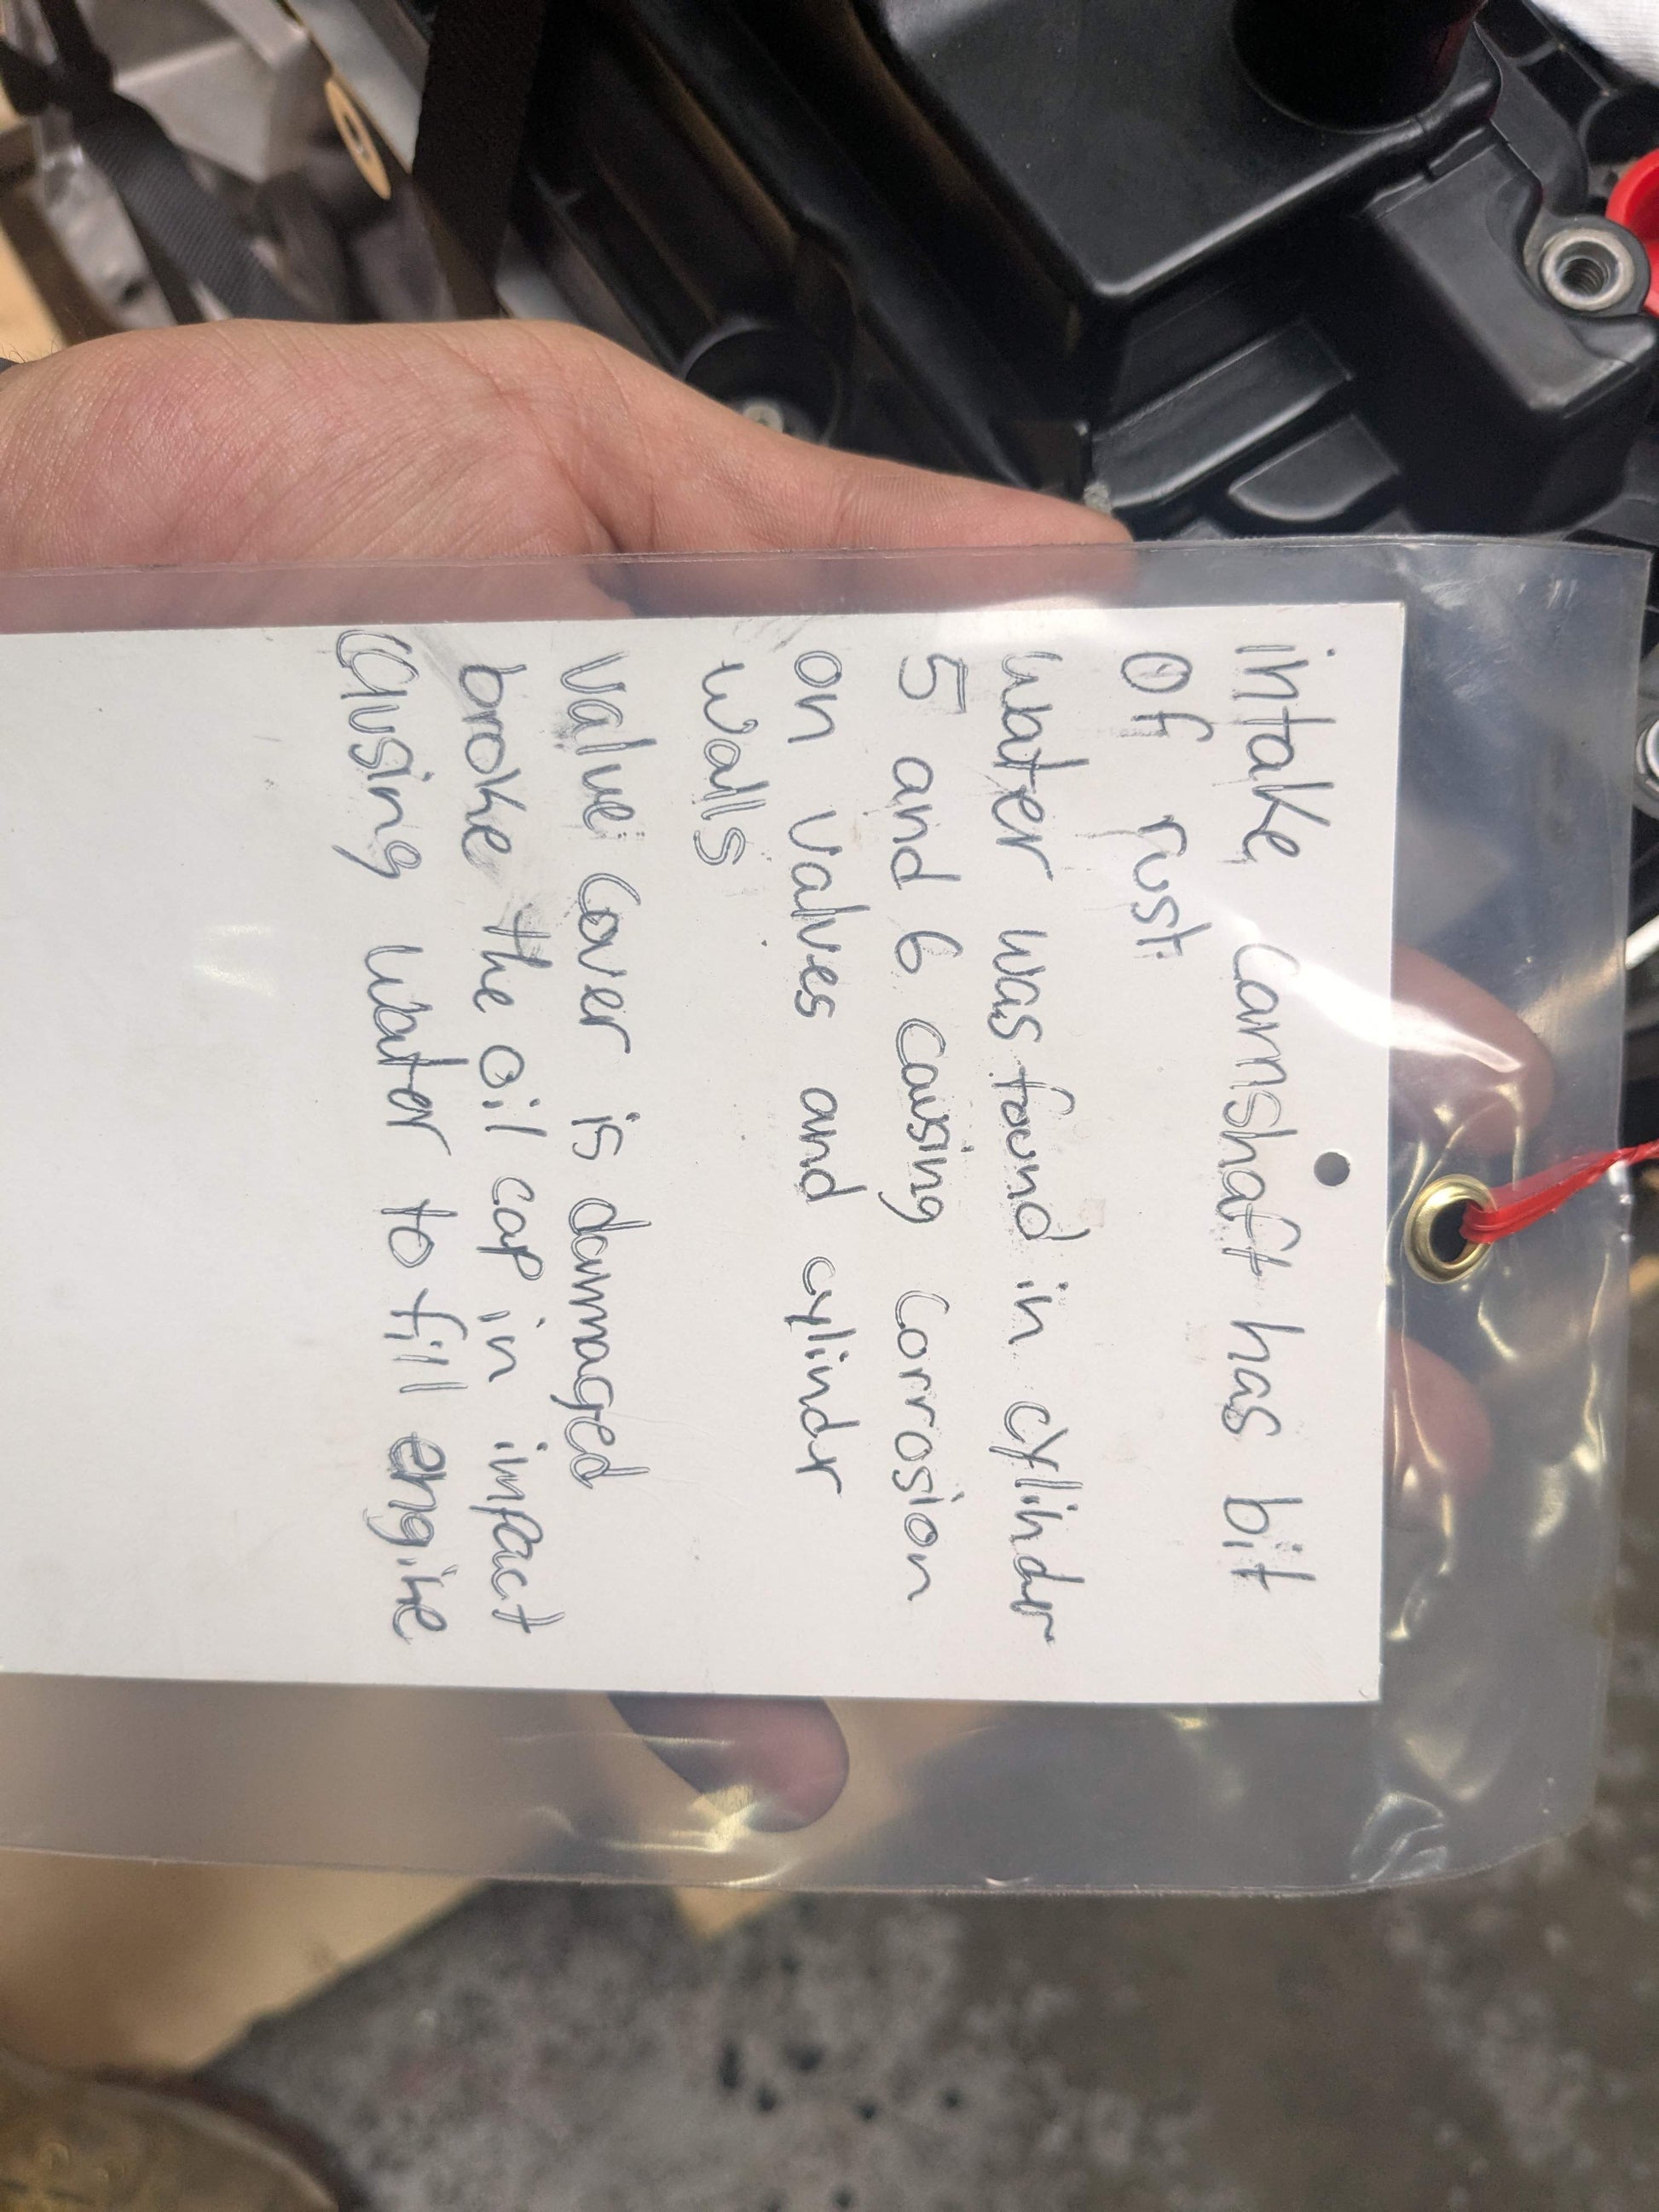 intake camshaft has bit
of rust
water was found in cylindr
5 and 6 causing corrosion
on valves and cylindr
walls
valve cover is dammaged
broke the oil cap in impact
causing water to fill engine